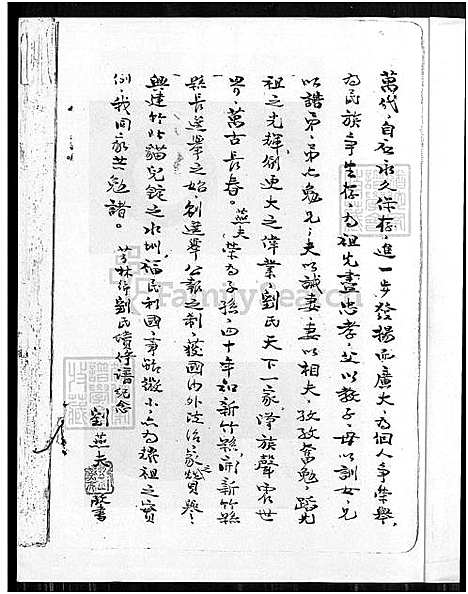 萬代、自應永久保存、進一步發揚而廣大、為個人爭榮譽、
為民族爭生存、為祖先盡忠孝、父以教子、母以訓女、兄
以諧弟、弟以勉兄、夫以誠妻、妻以相夫、孜孜奮勉、蹈先
祖之光輝、創更大之偉業、劉氏天下一家、漢族聲震世
界、萬古長春。燕夫榮為子孫、四十年初新竹縣、開新竹縣
縣長選舉之始、創選舉公報之制、獲國內外法治家之讚譽、
興建竹北貓兒錠之水圳、福民利國、事雖微小、亦為耀祖之實
例、我同家共勉諸。
芎林鄉劉氏續修譜紀念
劉燕夫 敬書
FamilySearch